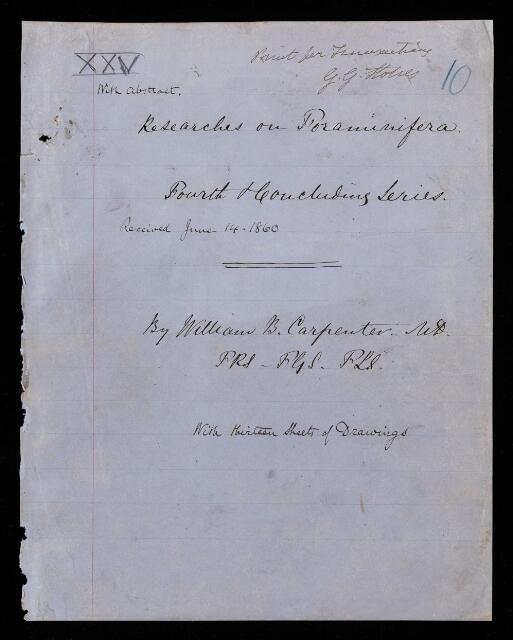 XXV
Print for Transactions
G. G. Stokes
10
With abstract.
Researches on Foraminifera.
Fourth & Concluding Series.
Received June 14 - 1860
By William B. Carpenter. MD.
FRS - FGS - FLS.
With thirteen sheets of Drawings